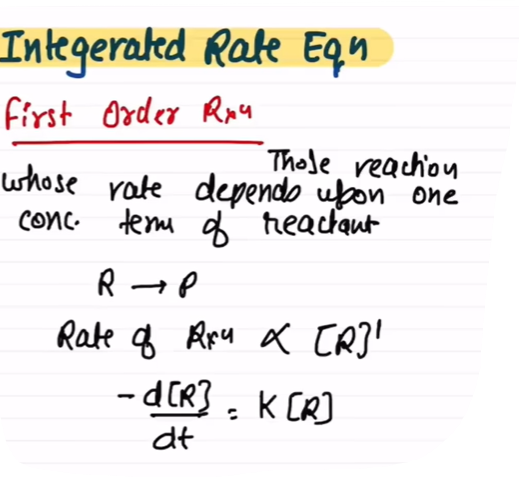 Integerated Rate Eqn
First Order Rxn
Those reaction
whose rate depends upon one
conc. term of reactant
R → P
Rate of Rxn ∝ [R]¹
-d[R]/dt = K[R]